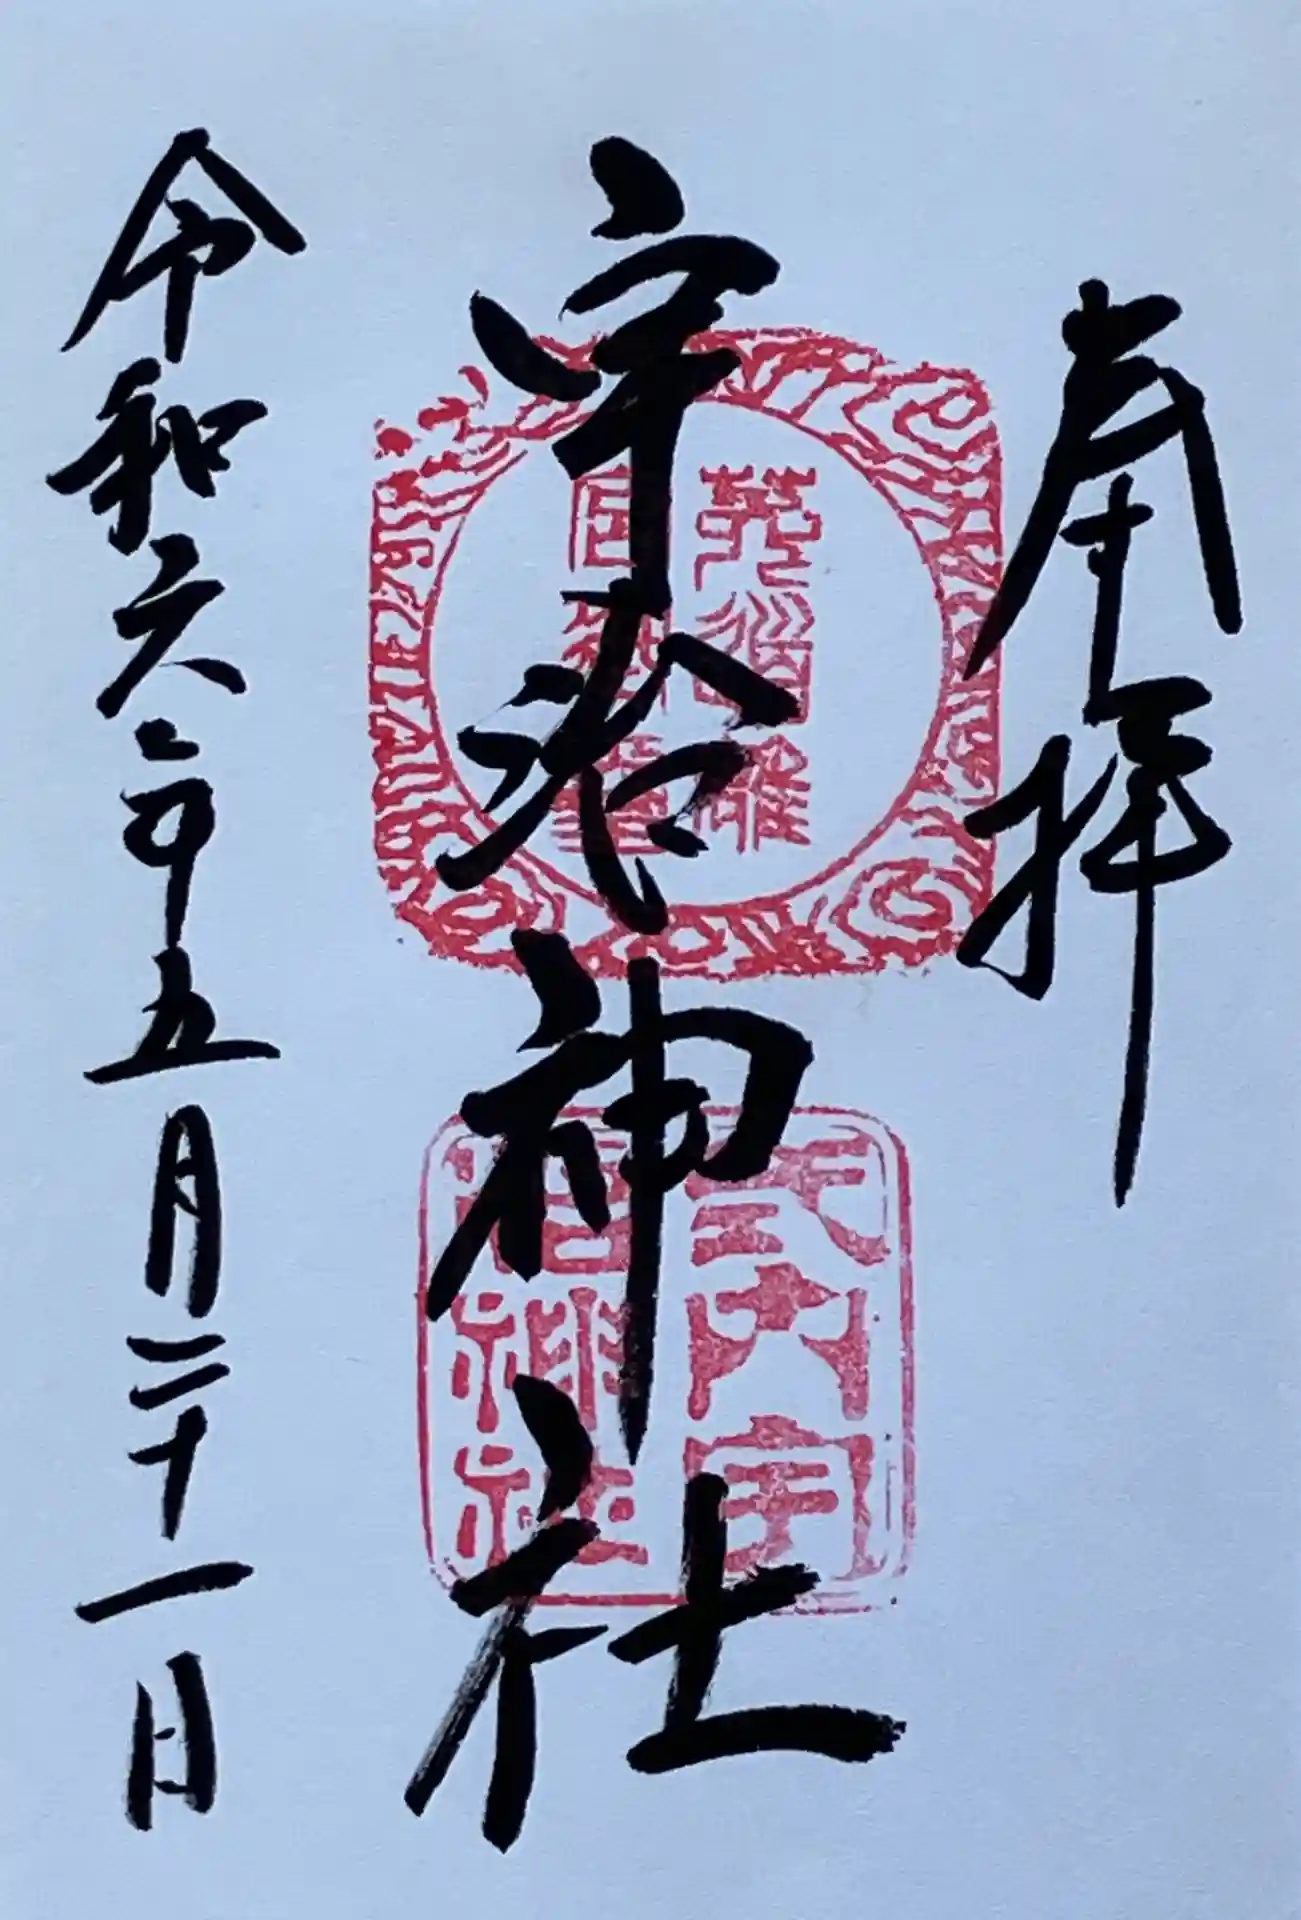 奉拝
宇治神社
式内宇
治神社
令和六年五月二十一日